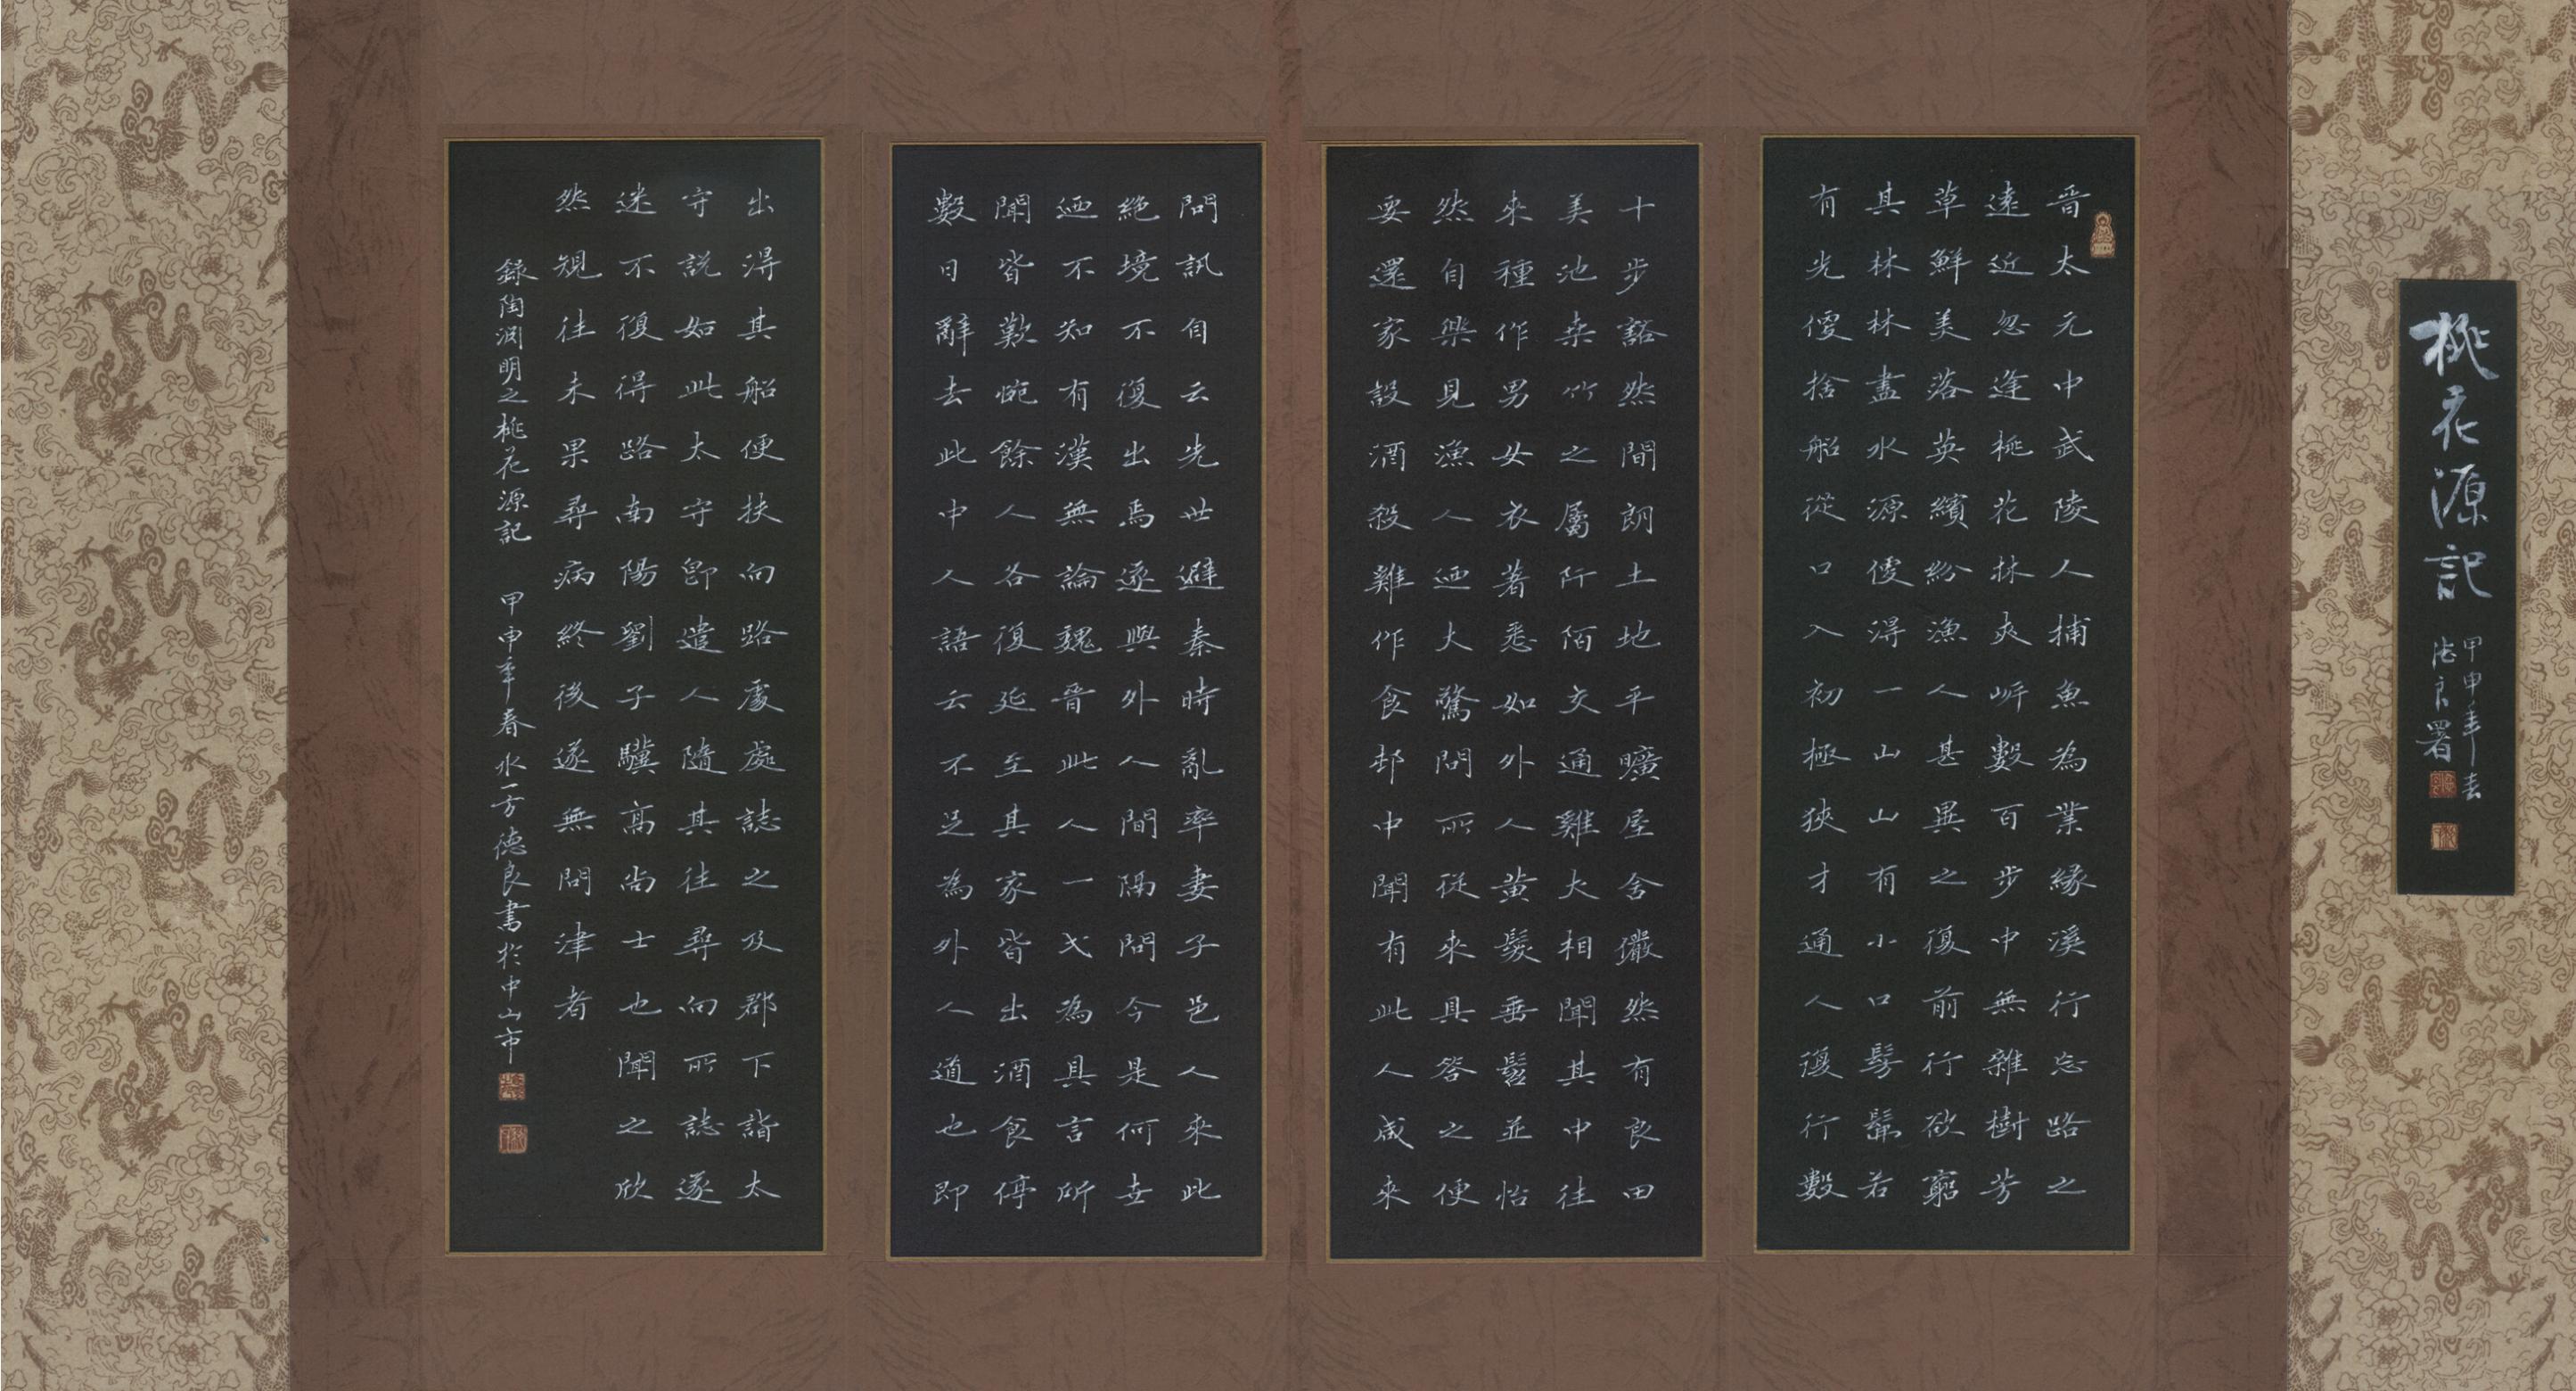 桃花源記
甲申年春
德良署
晉太元中武陵人捕魚為業緣溪行忘路之
遠近忽逢桃花林夾岍數百步中無雜樹芳
草鮮美落英繽紛漁人甚異之復前行欲窮
其林林盡水源便得一山山有小口髣髴若
有光便捨船從口入初極狹才通人復行數
十步豁然間朗土地平曠屋舍儼然有良田
美池桑竹之屬阡陌交通雞犬相聞其中往
來種作男女衣著悉如外人黃髮垂髫並怡
然自樂見漁人迺大驚問所從來具答之便
要還家設酒殺雞作食邨中聞有此人咸來
問訊自云先世避秦時亂率妻子邑人來此
絕境不復出焉遂與外人間隔問今是何世
迺不知有漢無論魏晉此人一一為具言所
聞皆歎惋餘人各復延至其家皆出酒食停
數日辭去此中人語云不足為外人道也即
出得其船便扶向路處處誌之及郡下詣太
守說如此太守即遣人隨其往尋向所誌遂
迷不復得路南陽劉子驥高尚士也聞之欣
然規往未果尋病終後遂無問津者
錄陶淵明之桃花源記 甲申年春水一方德良書於中山市